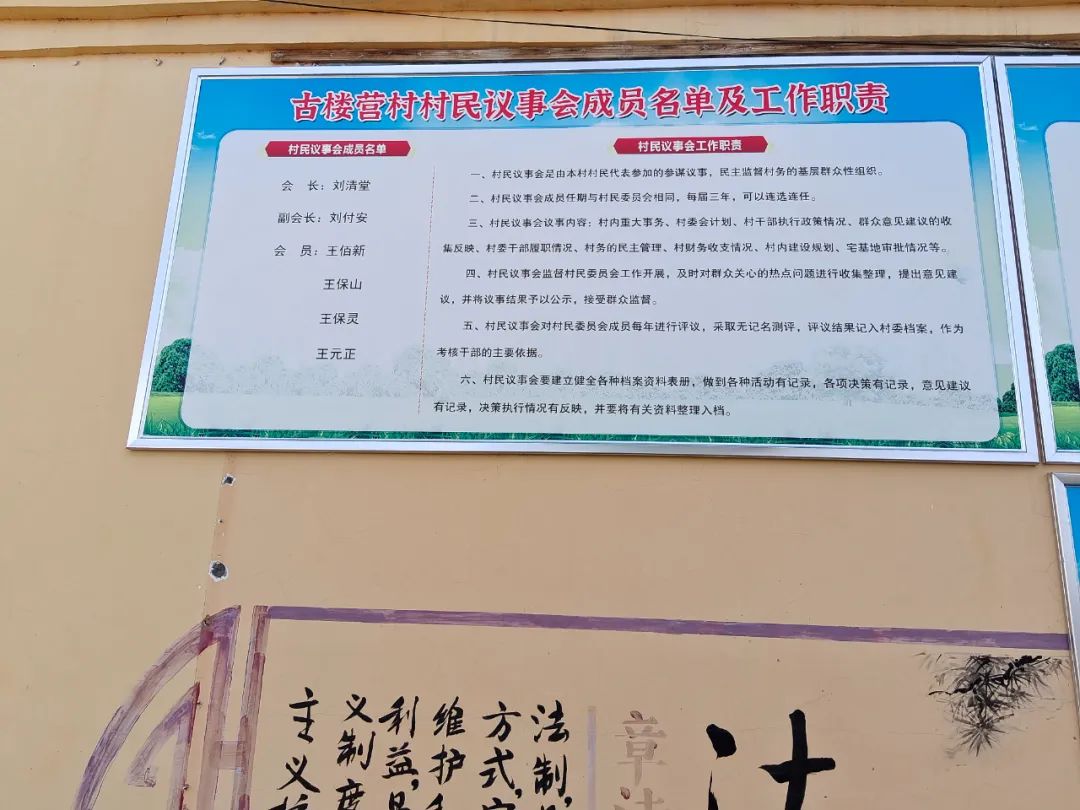 古楼营村村民议事会成员名单及工作职责
村民议事会成员名单
会 长：刘清堂
副会长：刘付安
会 员：王佰新
王保山
王保灵
王元正
村民议事会工作职责
一、村民议事会是由本村村民代表参加的参谋议事，民主监督村务的基层群众性组织。
二、村民议事会成员任期与村民委员会相同，每届三年，可以连选连任。
三、村民议事会议事内容：村内重大事务、村委会计划、村干部执行政策情况、群众意见建议的收
集反映、村委干部履职情况、村务的民主管理、村财务收支情况、村内建设规划、宅基地审批情况等。
四、村民议事会监督村民委员会工作开展，及时对群众关心的热点问题进行收集整理，提出意见建
议，并将议事结果予以公示，接受群众监督。
五、村民议事会对村民委员会成员每年进行评议，采取无记名测评，评议结果记入村委档案，作为
考核干部的主要依据。
六、村民议事会要建立健全各种档案资料表册，做到各种活动有记录，各项决策有记录，意见建议
有记录，决策执行情况有反映，并要将有关资料整理入档。
章法
法制,
方式,
维护
利益,
义制度
主义